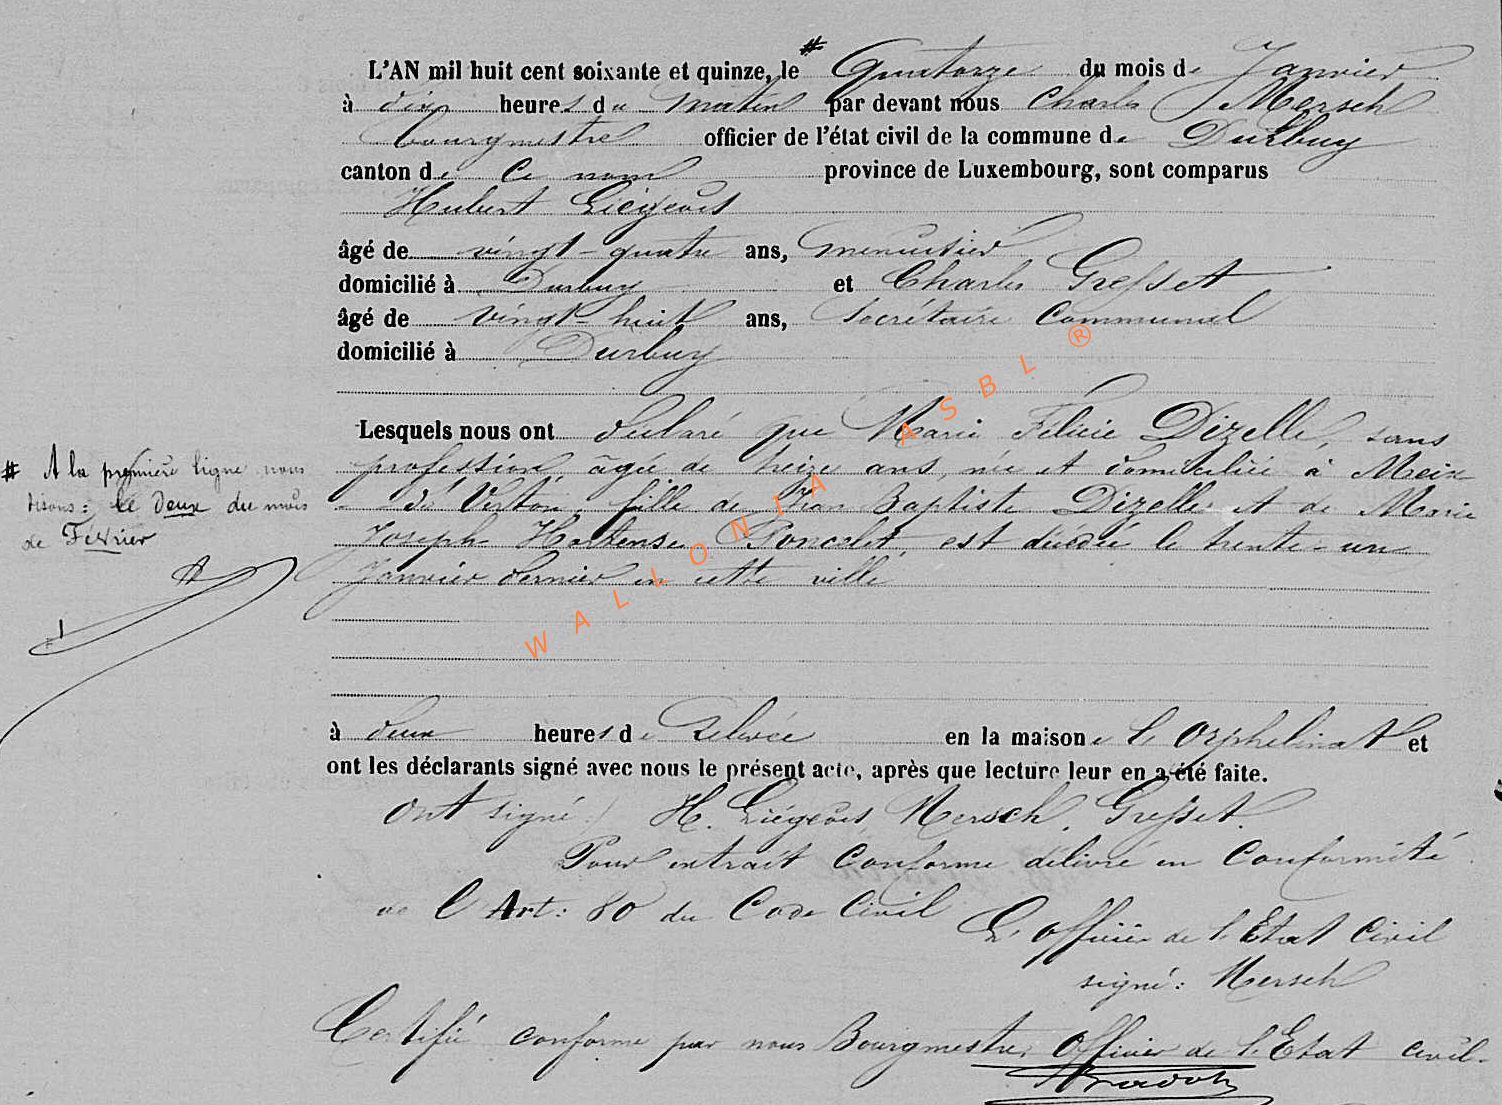 L'AN mil huit cent soixante et quinze, le # Quatorze du mois de Janvier
à dix heures du matin par devant nous Charles Mersch
bourgmestre officier de l'état civil de la commune de Durbuy
canton de Ce nom province de Luxembourg, sont comparus
Hubert Liégeois
âgé de vingt-quatre ans, menuisier
domicilié à Durbuy et Charles Gresset
âgé de vingt-huit ans, Secrétaire Communal
domicilié à Durbuy
Lesquels nous ont déclaré que Marie Félicie Dizelle, sans
profession âgée de treize ans, née et domiciliée à Meix
-dt Virton, fille de Jean Baptiste Dizelle et de Marie
Joseph Hortense Poncelet, est décédée le trente-un
Janvier dernier en cette ville
# A la première ligne nous
disons: le Deux du mois
de Février
à deux heures de Relevée en la maison de l'Orphelinat et
ont les déclarants signé avec nous le présent acte, après que lecture leur en a été faite.
Ont signé) H. Liégeois, Mersch, Gresset.
Pour extrait Conforme délivré en Conformité
de l'Art: 80 du Code Civil
L'Officier de l'Etat Civil
signé: Mersch
Certifié conforme par nous Bourgmestre Officier de l'Etat civil.
WALLONIA ASBL ®